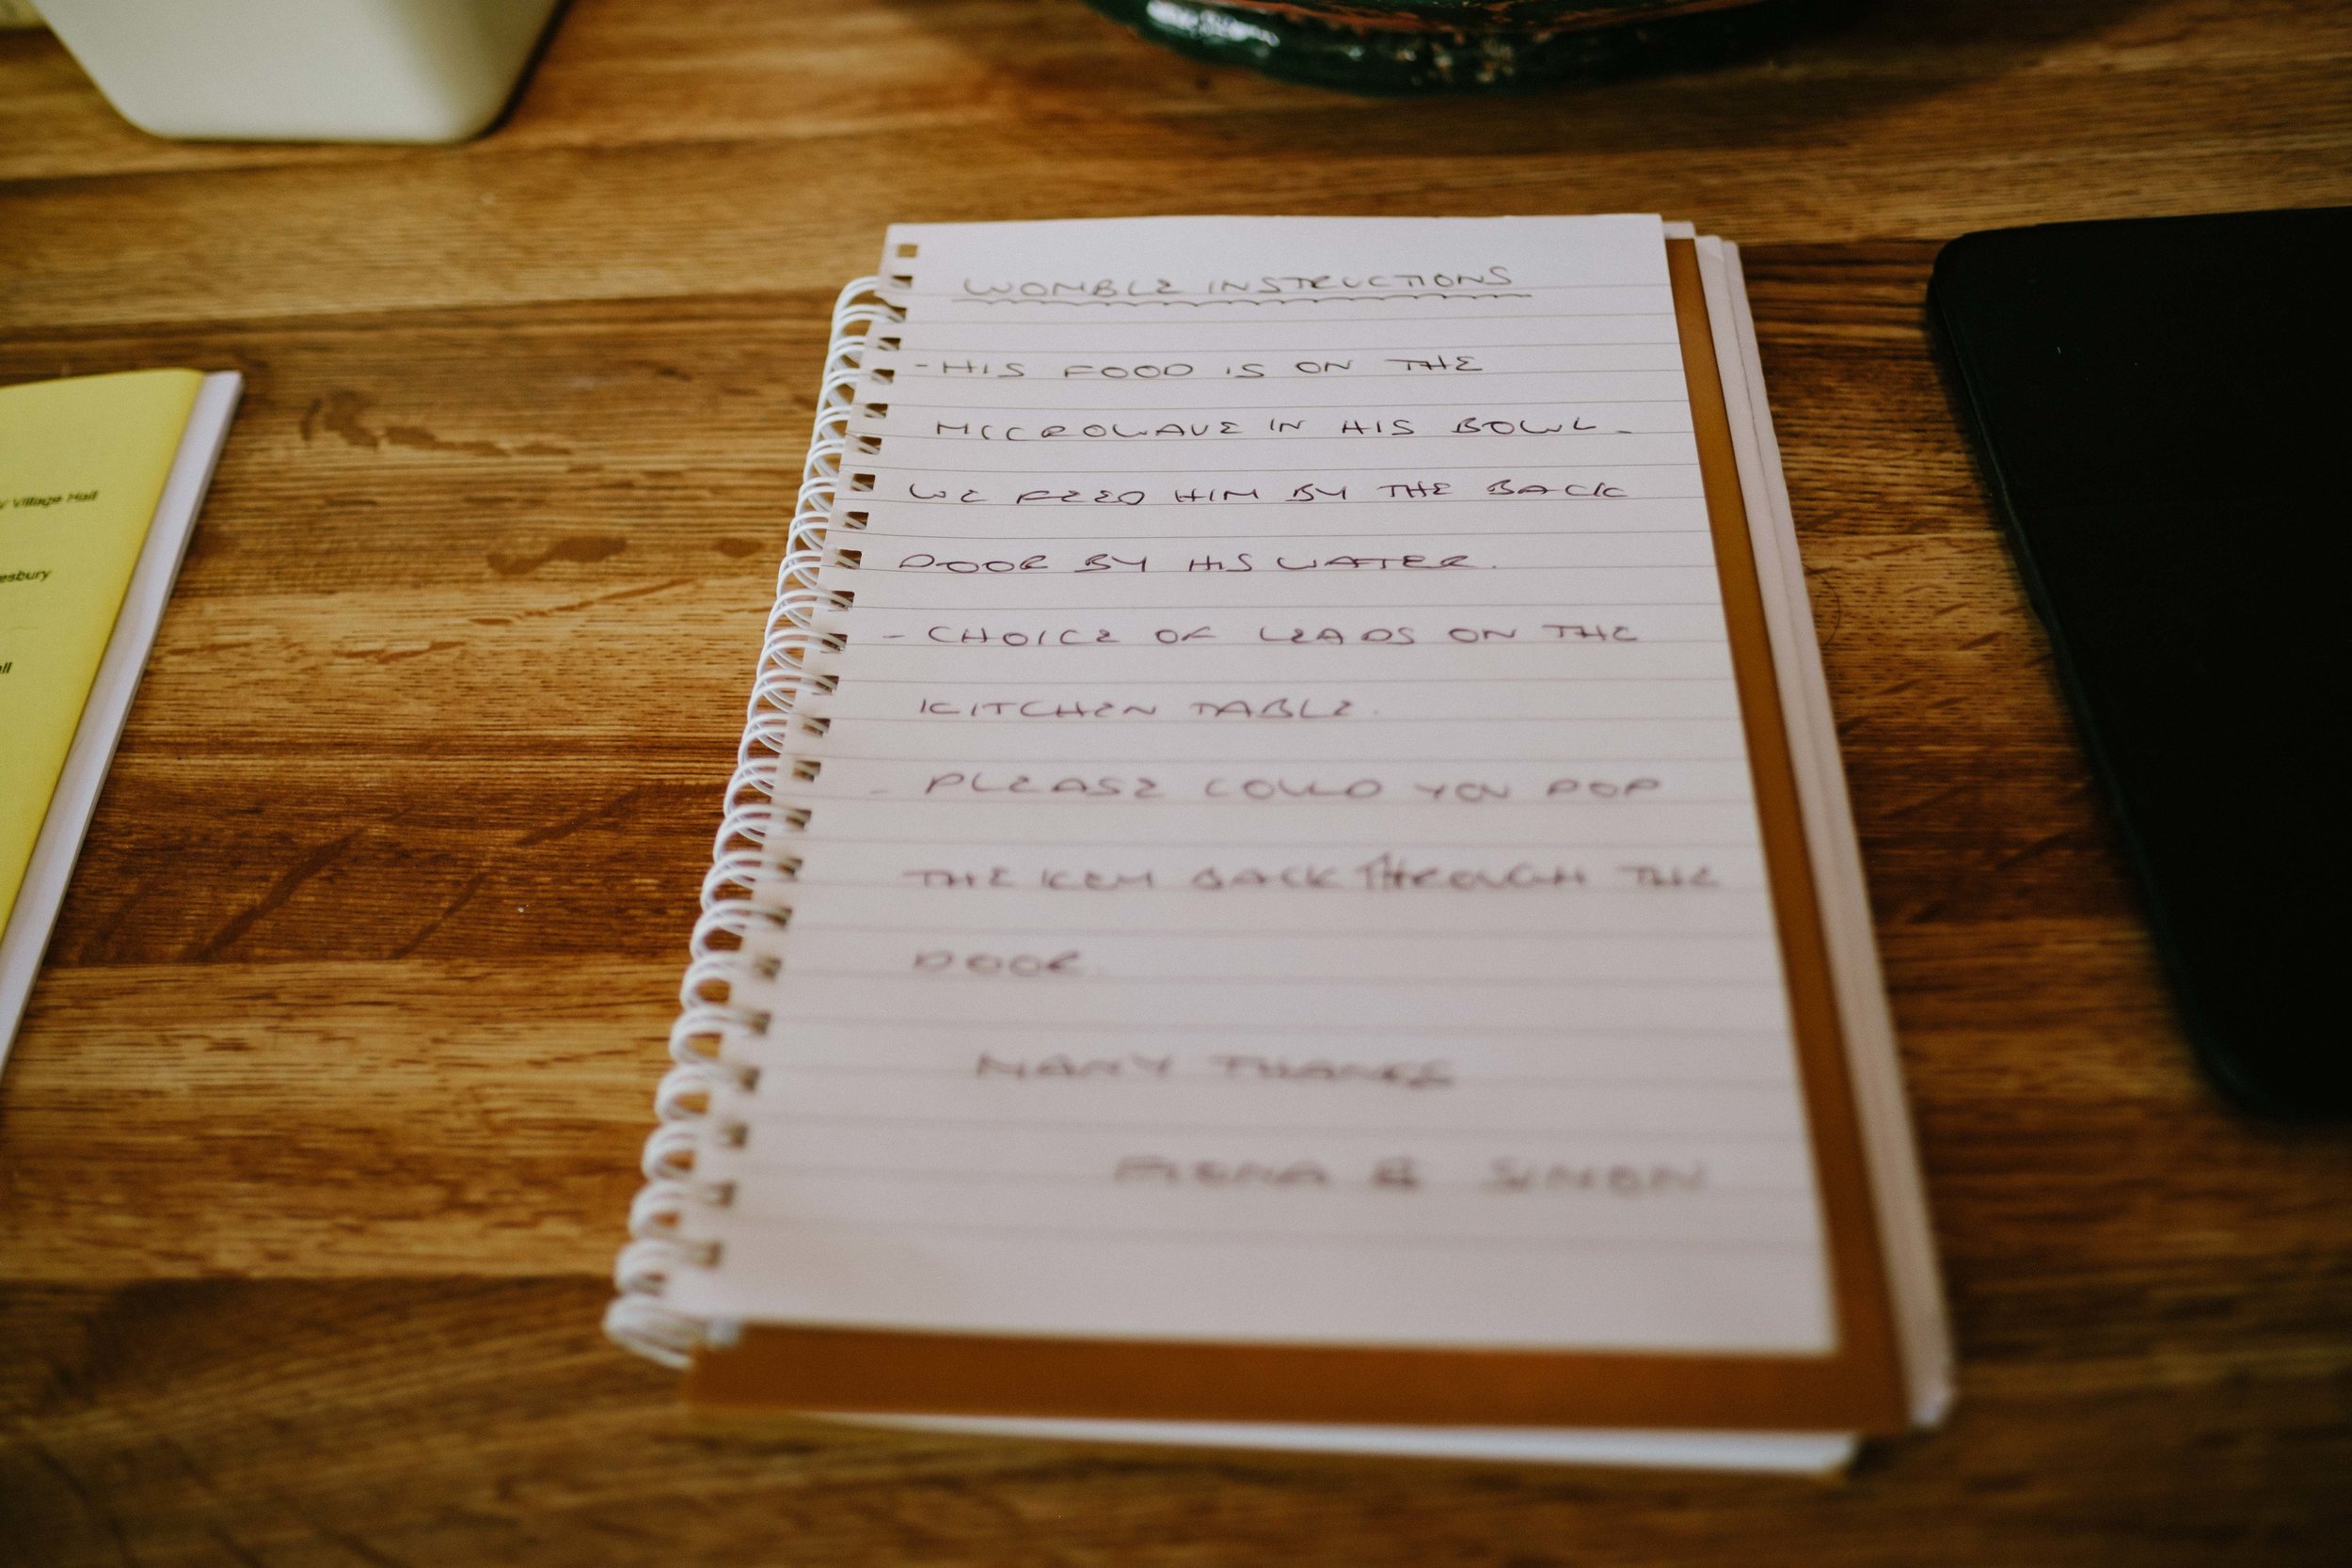 WOMBLE INSTRUCTIONS
- HIS FOOD IS ON THE
MICROWAVE IN HIS BOWL -
WE FEED HIM BY THE BACK
DOOR BY HIS WATER.
- CHOICE OF LEADS ON THE
KITCHEN TABLE.
- PLEASE COULD YOU POP
THE KEY BACK THROUGH THE
DOOR.
MANY THANKS
FIONA & SIMON
Village Hall